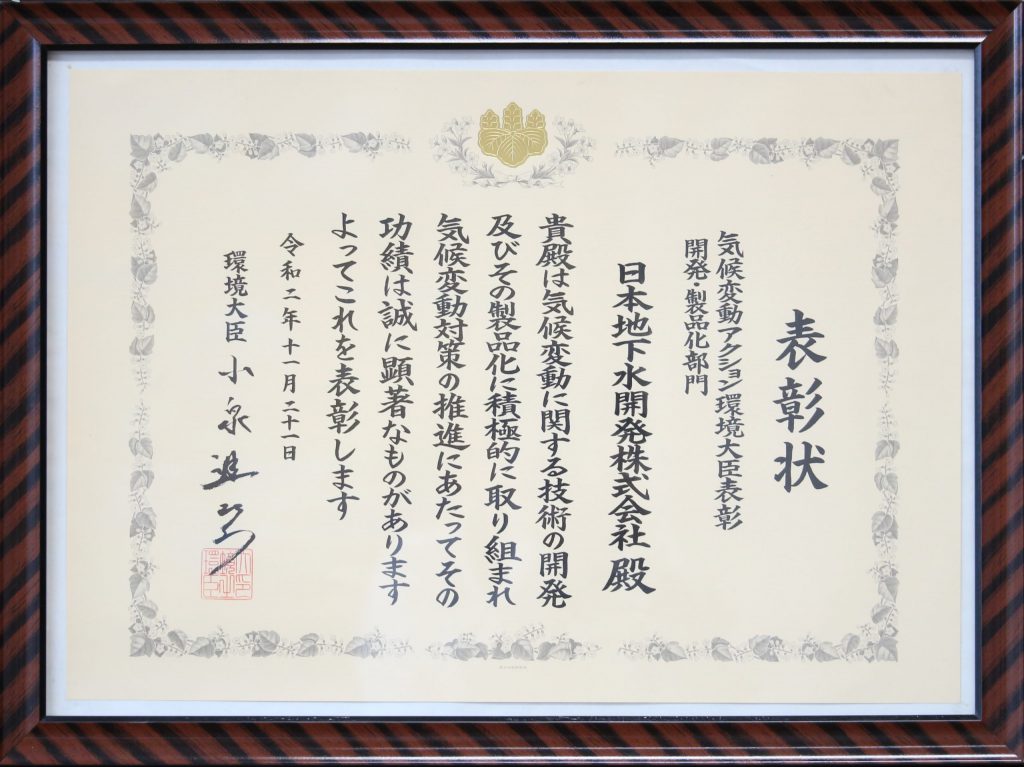 表彰状
気候変動アクション環境大臣表彰
開発・製品化部門
日本地下水開発株式会社 殿
貴殿は気候変動に関する技術の開発
及びその製品化に積極的に取り組まれ
気候変動対策の推進にあたってその
功績は誠に顕著なものがあります
よってこれを表彰します
令和二年十二月二十一日
環境大臣 小泉進次郎